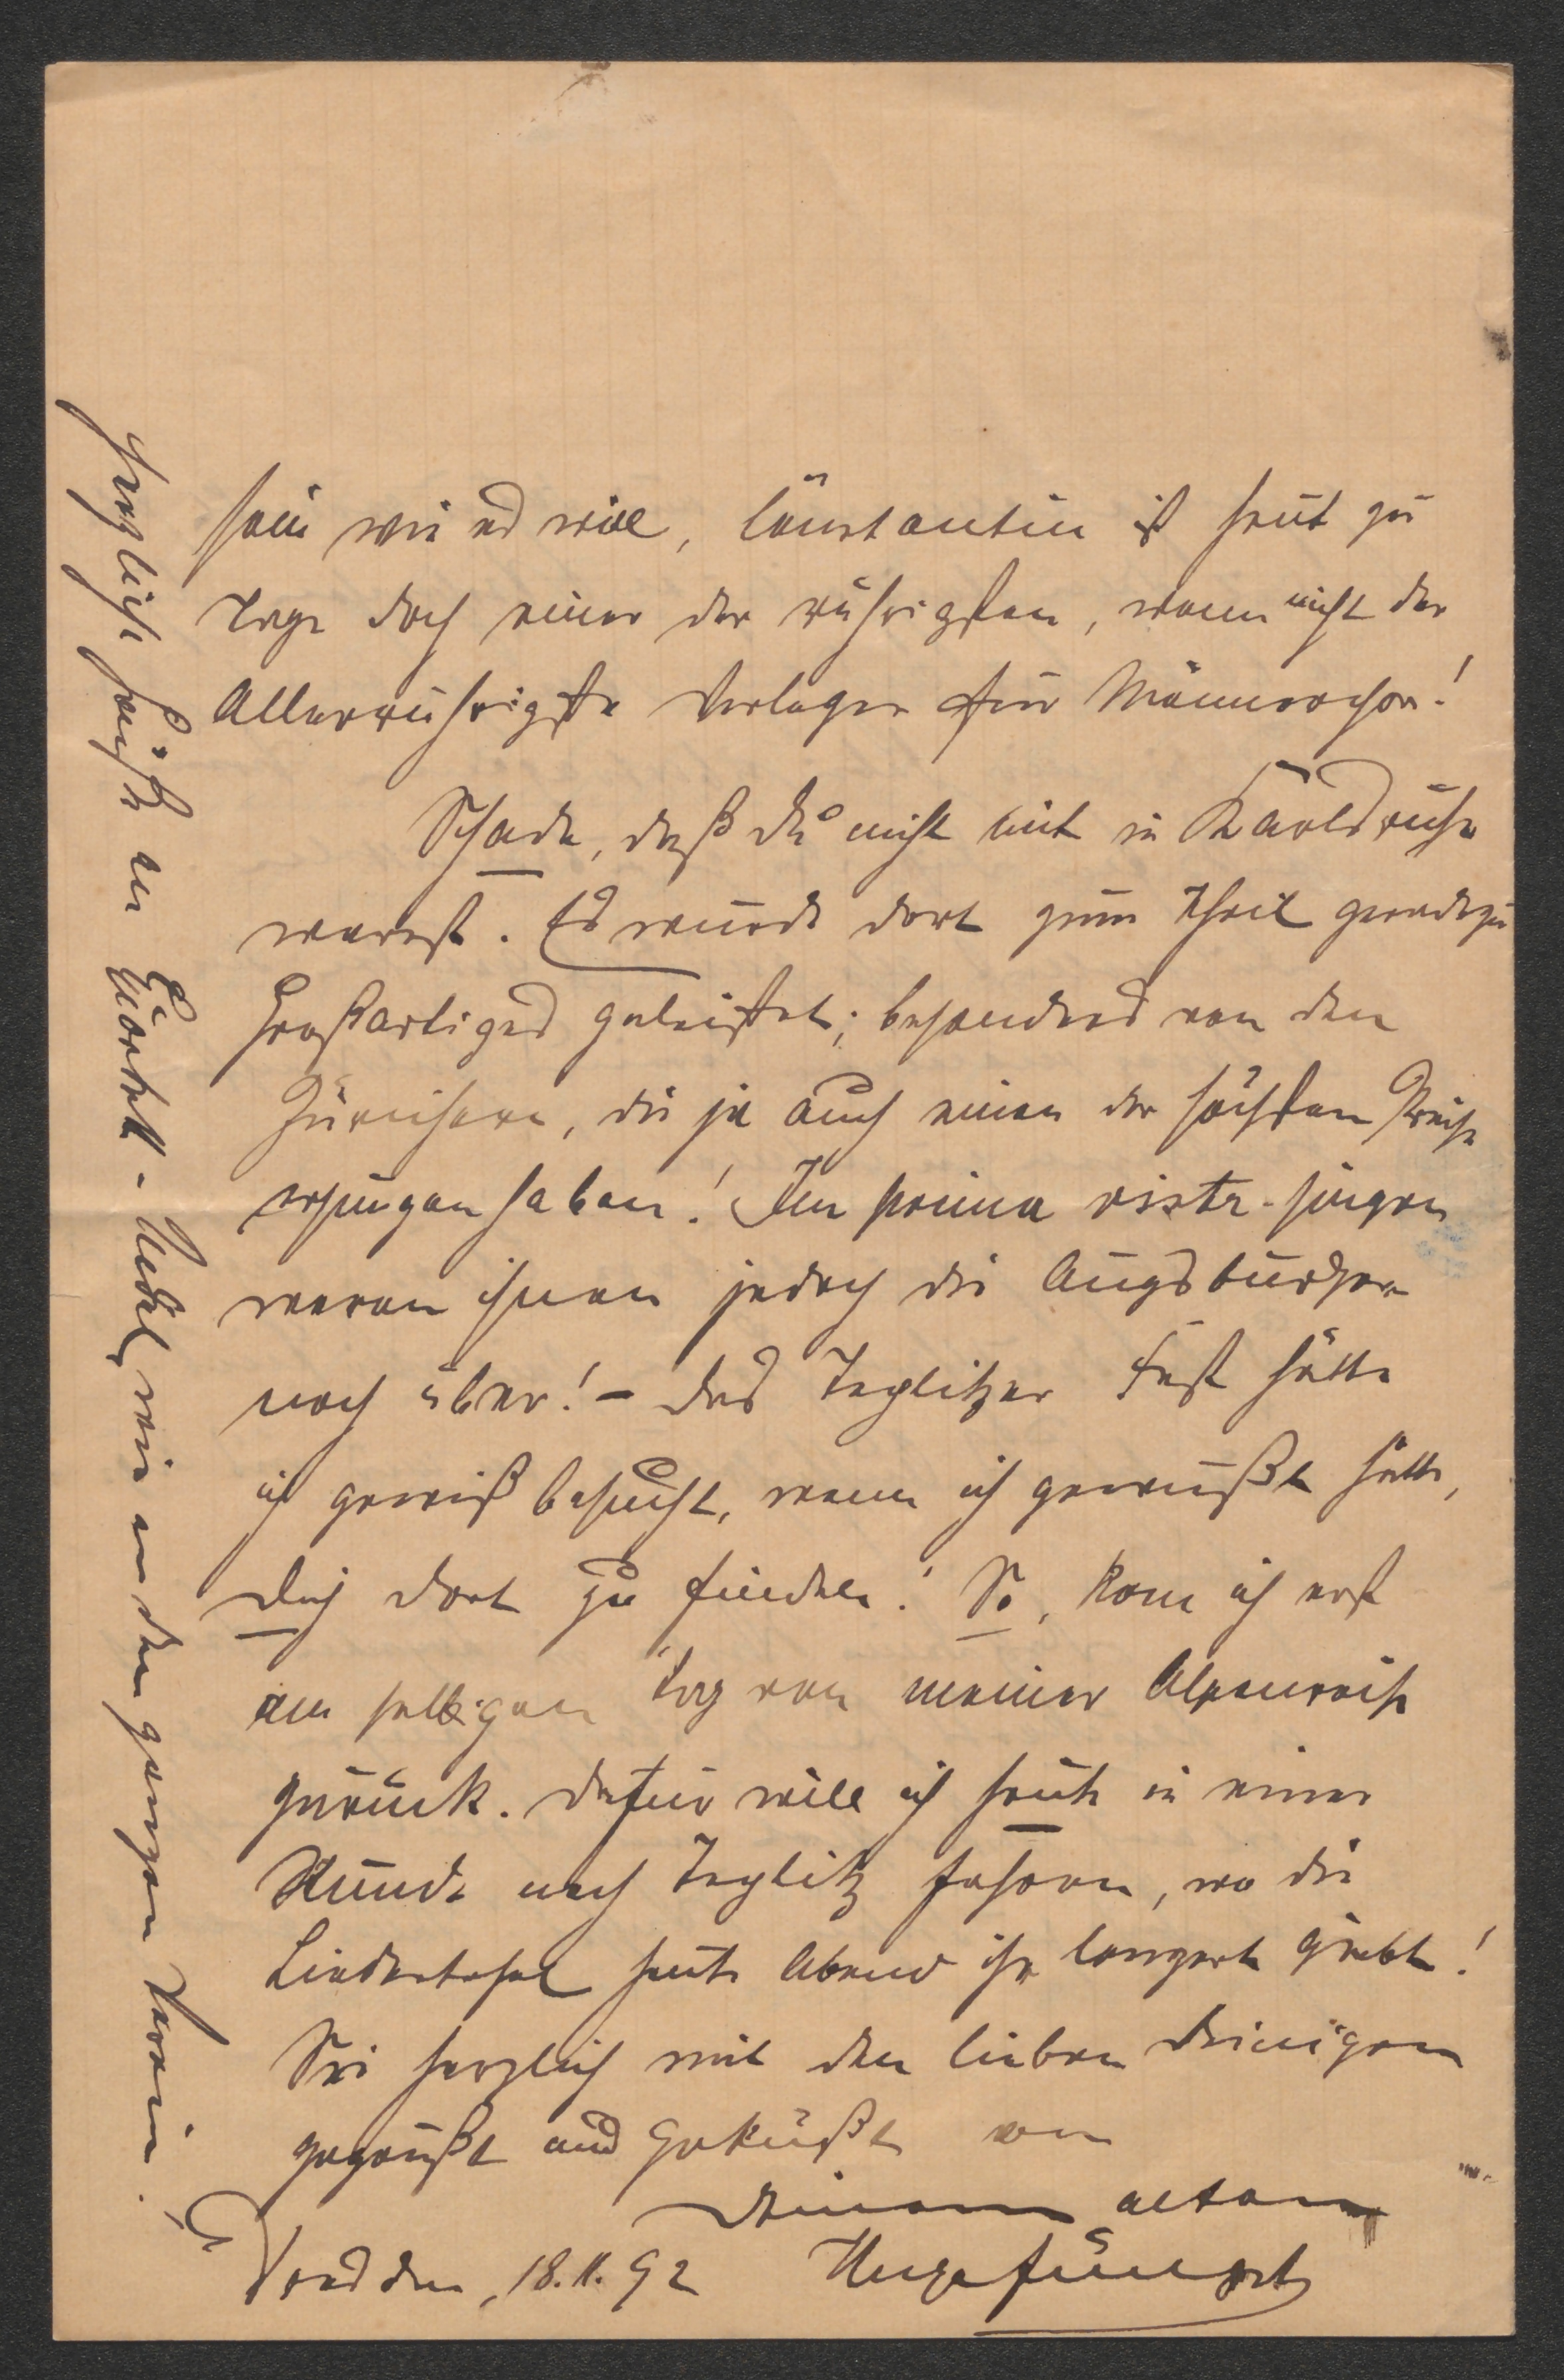 sein wie es will, Constantin ist heut zu
Tage doch einer der rührigsten, wenn nicht der
Allerrührigste Verleger für Männerchor!
Schade, daß Du nicht mit in Karlsruhe
warst. Es wurde dort zum Theil geradezu
Großartiges geleistet; besonders von den
Zürichern, die ja auch einen der höchsten Preise
ersungen haben! Im prima vista-singen
waren ihnen jedoch die Augsburger
noch über! – Das Teplitzer Fest hätte
ich gewiß besucht, wenn ich gewußt hätte,
Dich dort zu finden! So, kam ich erst
am selbigen Tag von meiner Alpenreise
zurück. Dafür will ich heute in einer
Stunde nach Teplitz fahren, wo die
Liedertafel heute Abend ihr Conzert giebt!
Sei herzlich mit den lieben Deinigen
gegrüßt und geküßt von
Deinem alten
Dresden, 18.11.92 Hugo Jüngst
Herzliche Grüße an wie an den ganzen Verein.